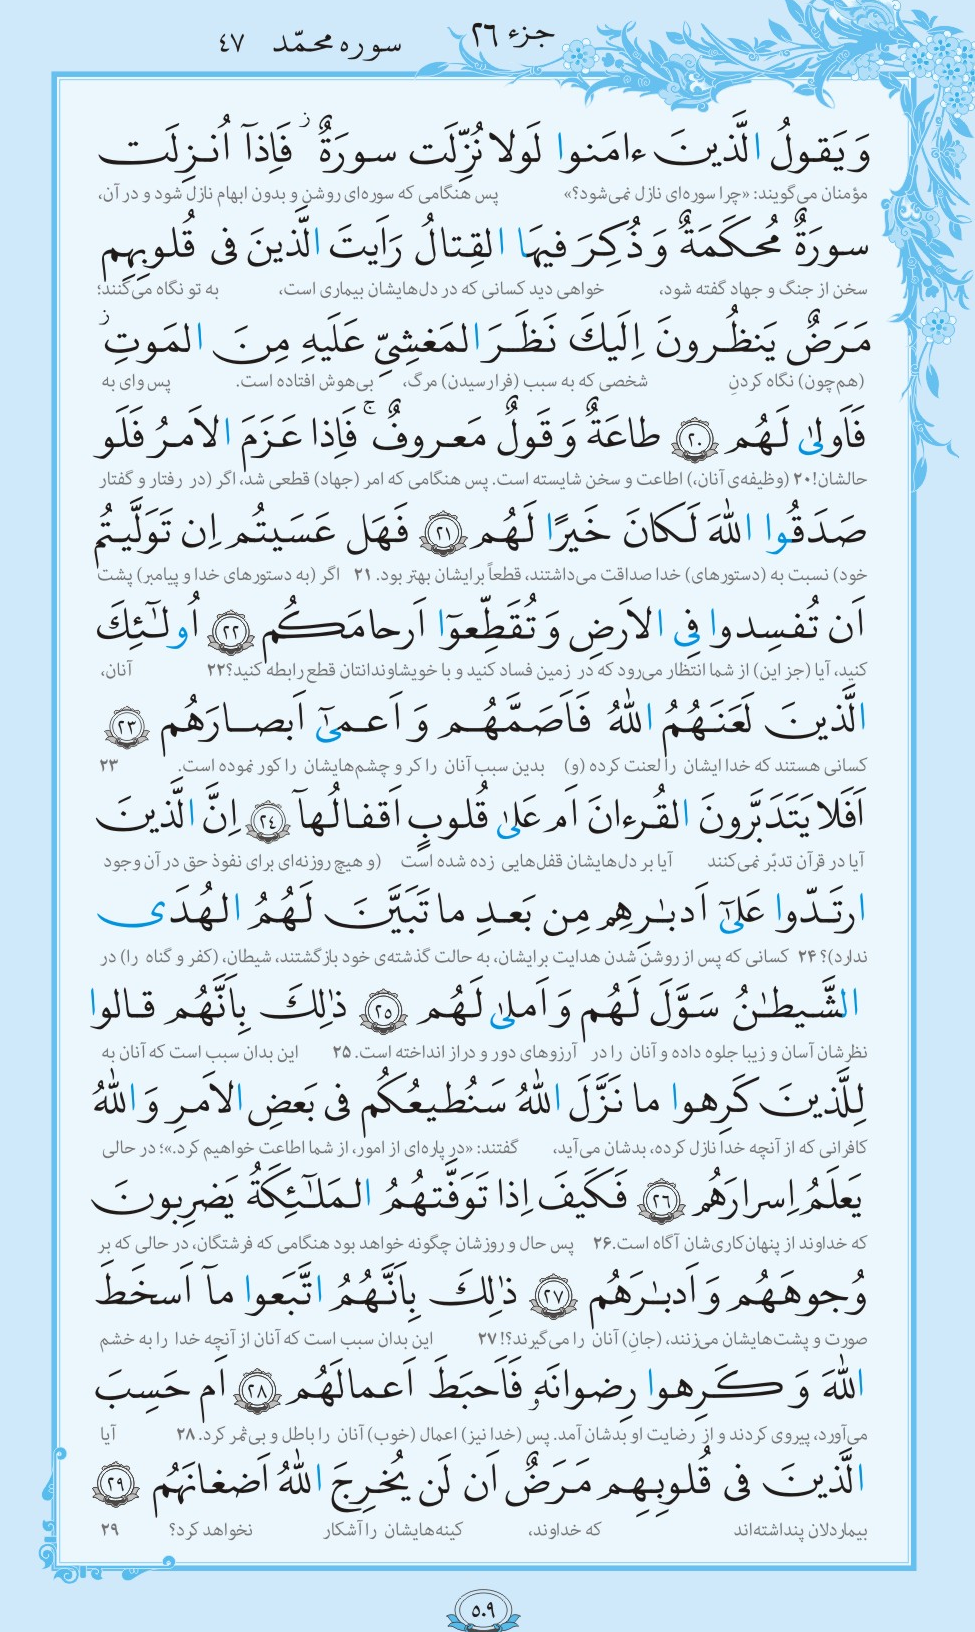 جزء ٢٦
سوره محمّد ٤٧
وَ يَقولُ الَّذينَ ءامَنوا لَولا نُزِّلَت سورَةٌ ۖ فَاِذآ اُنزِلَت
مؤمنان می‌گویند: «چرا سوره‌ای نازل نمی‌شود؟» پس هنگامی که سوره‌ای روشن و بدون ابهام نازل شود و در آن،
سورَةٌ مُحكَمَةٌ وَ ذُكِرَ فيهَا القِتالُ رَاَيتَ الَّذينَ فى قُلوبِهِم
سخن از جنگ و جهاد گفته شود، خواهی دید کسانی که در دل‌هایشان بیماری است، به تو نگاه می‌کنند؛
مَرَضٌ يَنظُرونَ اِلَيكَ نَظَرَ المَغشِيِّ عَلَيهِ مِنَ المَوتِ ۖ
(هم‌چون) نگاه کردنِ شخصی که به سبب (فرا رسیدن) مرگ، بی‌هوش افتاده است. پس وای به
فَاَولىٰ لَهُم ٢٠ طاعَةٌ وَ قَولٌ مَعروفٌ ۚ فَاِذا عَزَمَ الاَمرُ فَلَو
حالشان! ۲۰ (وظیفه‌ی آنان،) اطاعت و سخن شایسته است. پس هنگامی که امر (جهاد) قطعی شد، اگر (در رفتار و گفتار
صَدَقُوا اللّٰهَ لَكانَ خَيرًا لَهُم ٢١ فَهَل عَسَيتُم اِن تَوَلَّيتُم
خود) نسبت به (دستورهای) خدا صداقت می‌داشتند، قطعاً برایشان بهتر بود. ۲۱ اگر (به دستورهای خدا و پیامبر) پشت
اَن تُفسِدوا فِى الاَرضِ وَ تُقَطِّعوٓا اَرحامَكُم ٢٢ اُولٰٓئِكَ
کنید، آیا (جز این) از شما انتظار می‌رود که در زمین فساد کنید و با خویشاوندانتان قطع رابطه کنید؟ ۲۲ آنان،
الَّذينَ لَعَنَهُمُ اللّٰهُ فَاَصَمَّهُم وَ اَعمىٰٓ اَبصارَهُم ٢٣
کسانی هستند که خدا ایشان را لعنت کرده (و) بدین سبب آنان را کر و چشم‌هایشان را کور نموده است. ۲۳
اَفَلا يَتَدَبَّرونَ القُرءانَ اَم عَلىٰ قُلوبٍ اَقفالُهآ ٢٤ اِنَّ الَّذينَ
آیا در قرآن تدبّر نمی‌کنند آیا بر دل‌هایشان قفل‌هایی زده شده است (و هیچ روزنه‌ای برای نفوذ حق در آن وجود
ارتَدّوا عَلىٰٓ اَدبـٰرِهِم مِن بَعدِ ما تَبَيَّنَ لَهُمُ الهُدَى
ندارد)؟ ۲۴ کسانی که پس از روشن شدن هدایت برایشان، به حالت گذشته‌ی خود بازگشتند، شیطان، (کفر و گناه را) در
الشَّيطـٰنُ سَوَّلَ لَهُم وَ اَملىٰ لَهُم ٢٥ ذٰلِكَ بِاَنَّهُم قالوا
نظرشان آسان و زیبا جلوه داده و آنان را در آرزوهای دور و دراز انداخته است. ۲۵ این بدان سبب است که آنان به
لِلَّذينَ كَرِهوا ما نَزَّلَ اللّٰهُ سَنُطيعُكُم فى بَعضِ الاَمرِ وَ اللّٰهُ
کافرانی که از آنچه خدا نازل کرده، بدشان می‌آید، گفتند: «در پاره‌ای از امور، از شما اطاعت خواهیم کرد.»؛ در حالی
يَعلَمُ اِسرارَهُم ٢٦ فَكَيفَ اِذا تَوَفَّتهُمُ المَلـٰٓئِكَةُ يَضرِبونَ
که خداوند از پنهان‌کاری‌شان آگاه است. ۲۶ پس حال و روزشان چگونه خواهد بود هنگامی که فرشتگان، در حالی که بر
وُجوهَهُم وَ اَدبـٰرَهُم ٢٧ ذٰلِكَ بِاَنَّهُمُ اتَّبَعوا مآ اَسخَطَ
صورت و پشت‌هایشان می‌زنند، (جان) آنان را می‌گیرند؟! ۲۷ این بدان سبب است که آنان از آنچه خدا را به خشم
اللّٰهَ وَ كَرِهوا رِضوانَهٗ فَاَحبَطَ اَعمالَهُم ٢٨ اَم حَسِبَ
می‌آورد، پیروی کردند و از رضایت او بدشان آمد. پس (خدا نیز) اعمال (خوب) آنان را باطل و بی‌ثمر کرد. ۲۸ آیا
الَّذينَ فى قُلوبِهِم مَرَضٌ اَن لَن يُخرِجَ اللّٰهُ اَضغانَهُم ٢٩
بیماردلان پنداشته‌اند که خداوند، کینه‌هایشان را آشکار نخواهد کرد؟ ۲۹
٥٠٩